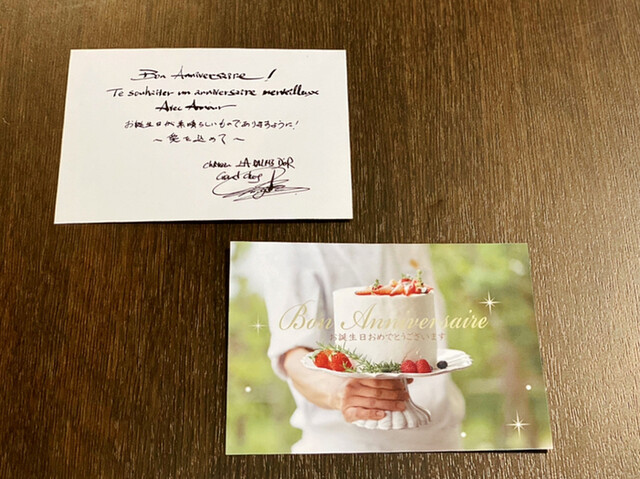 Bon Anniversaire!
Te souhaiter un anniversaire merveilleux
Avec Amour
お誕生日が素晴らしいものでありますように!
～愛を込めて～
LA PALME D'OR
Bon Anniversaire
お誕生日おめでとうございます